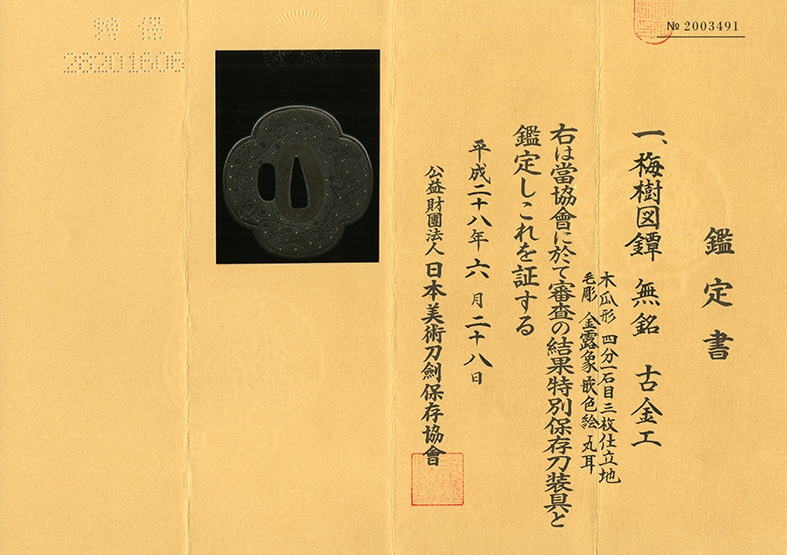 № 2003491
鑑定書
一、梅樹図鐔 無銘 古金工
木瓜形 四分一石目三枚仕立地
毛彫 金露象嵌色絵 丸耳
右は當協會に於て審査の結果特別保存刀装具と
鑑定しこれを証する
平成二十八年六月二十八日
公益財團法人 日本美術刀劍保存協會
特保
28201606